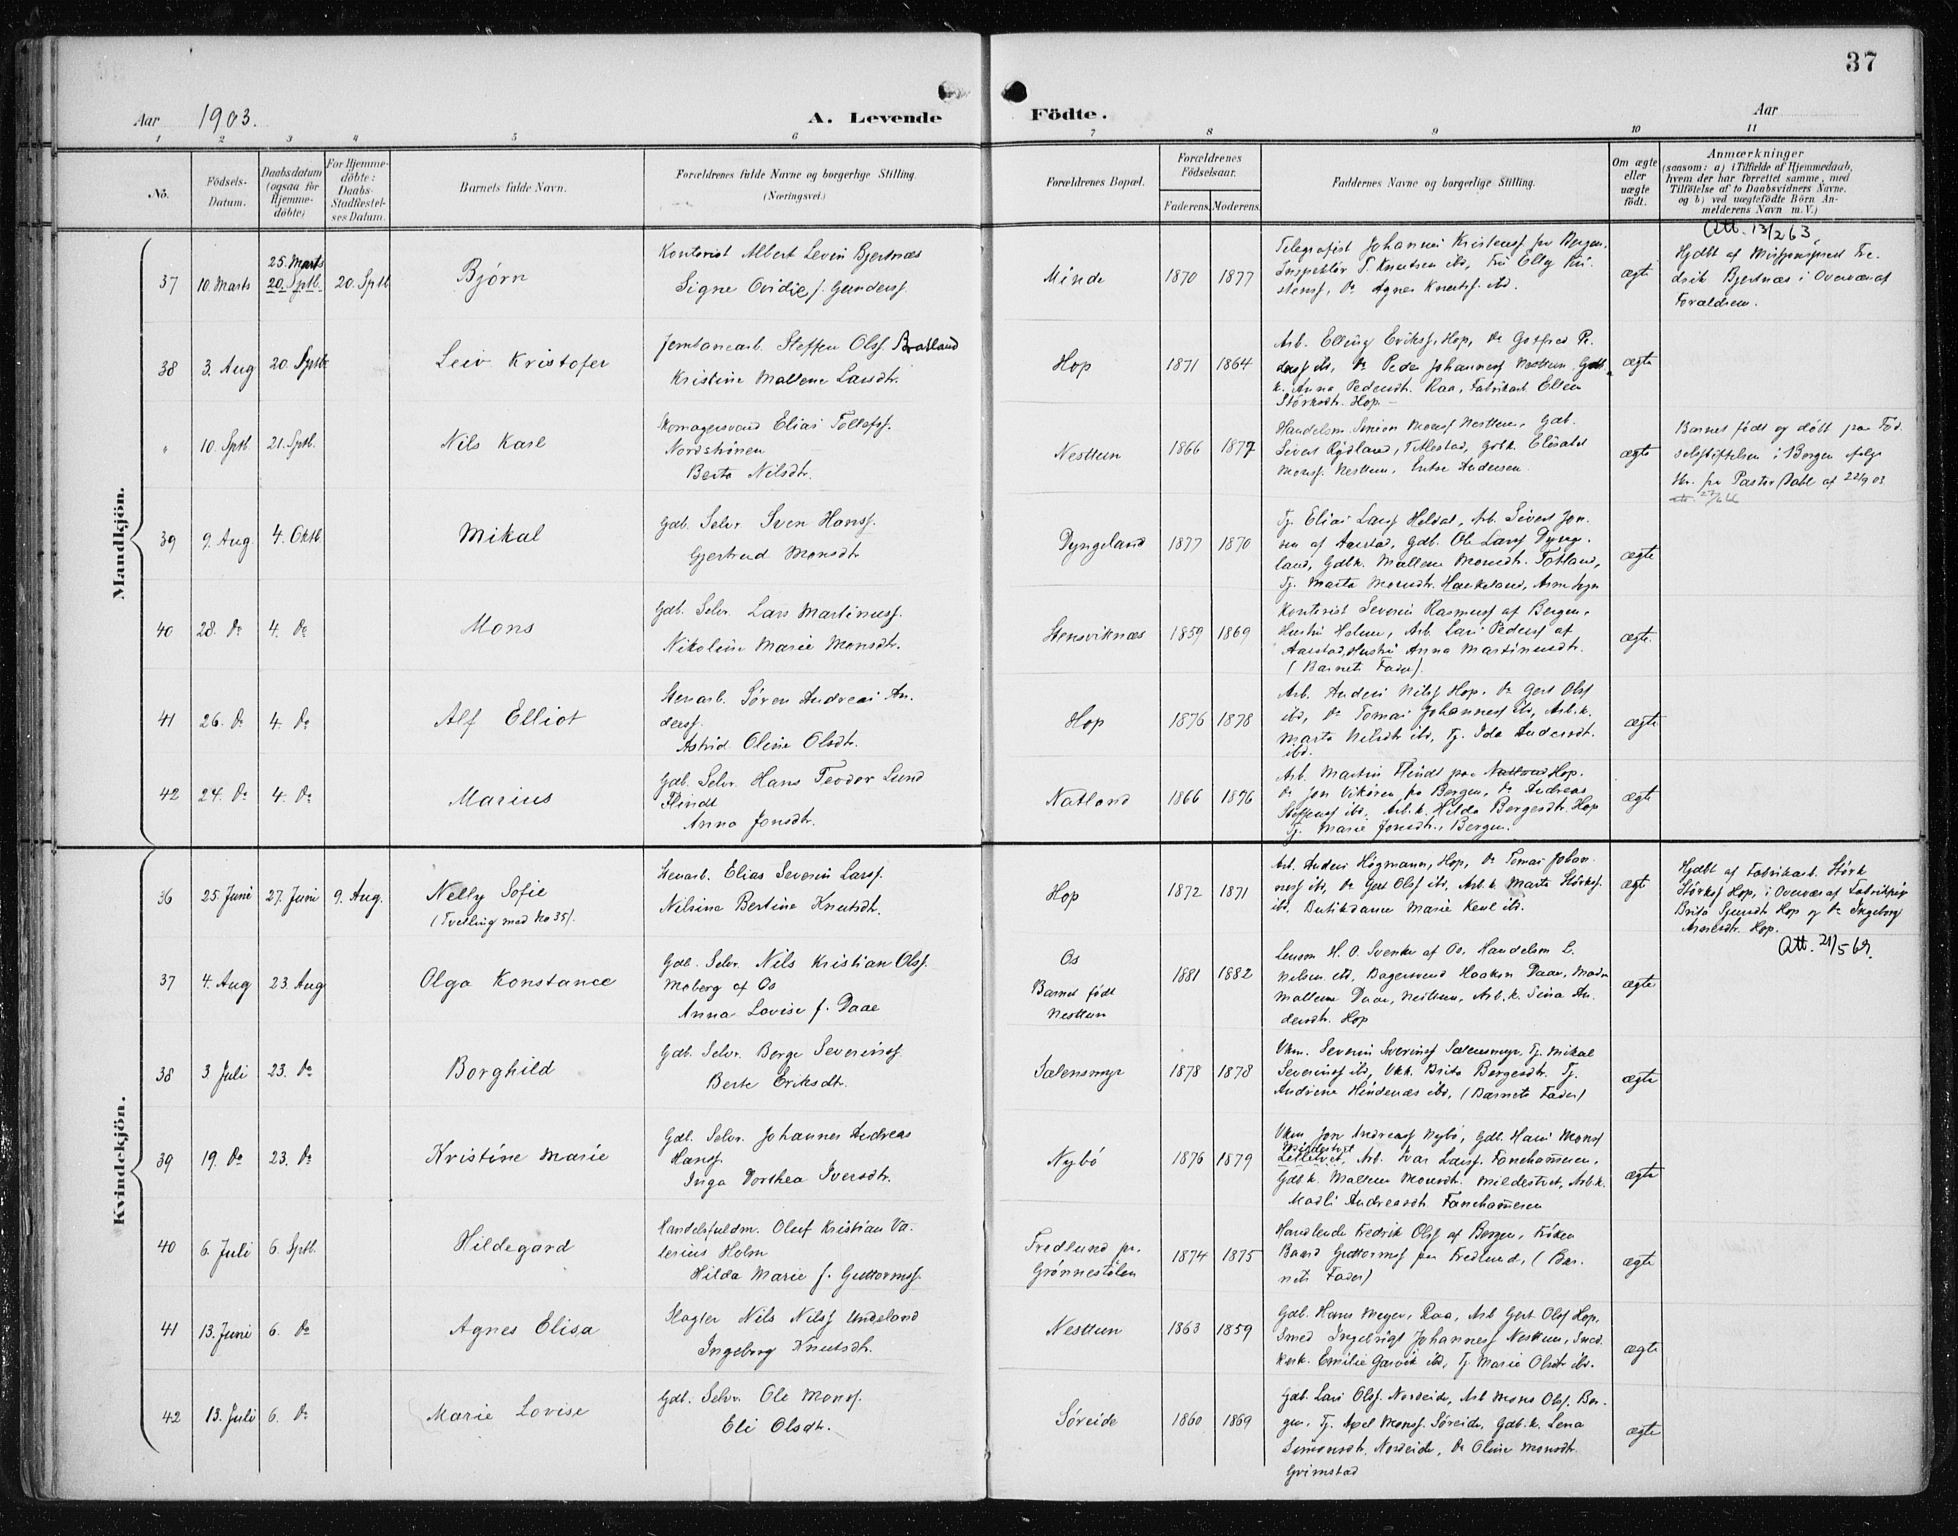 37
Aar 1903.
A. Levende Födte.
Aar
1 2 3 4 5 6 7 8 9 10 11
No.
Födsels-Datum.
Daabsdatum (ogsaa for Hjemme-döbte)
For Hjemme-döbte: Daabs-Stadfestel-ses Datum.
Barnets fulde Navn.
Forældrenes fulde Navne og borgerlige Stilling.
(Næringsvei.)
Forældrenes Bopæl.
Forældrenes Födselsaar.
Faderens. Moderens.
Faddernes Navne og borgerlige Stilling.
Om ægte eller uægte födt.
Anmærkninger
(saasom: a) i Tilfælde af Hjemmedaab,
hvem der har forrettet samme, med
Tilföielse af to Daabsvidners Navne.
og b) ved uægtefödte Börn An-
melderens Navn m. V.)
Mandkjön.
37 10. Marts 25. Marts 20. Sptb. 20. Sptb Bjørn
Kontorist Albert Levin Bjertnæs
Signe Ovidie f. Gunderss.
Minde 1870 1877
Telegrafist Johannes Kristenss fra Bergen,
Inspektør T. Knutsen ibd, Fru Elly Kri
stenss, Do Agnes Knutss. ibd.
ægte
Att. 13/2 63
Hjdbt af
drik Bjertnæs i Overvær af
Foraldrene.
38 3. Aug 20. Sptb Leiv Kristofer
Jernbanearb. Steffen Olss. Bratland
Kristine Mallene Larsdtr.
Hop 1871 1864
Arb. Elling Erikss, Hop, Do Gotfred Pe.
derss ibd, Do Peder Johanness Nesttun, Gdb.
k. Anna Pedersdt. Raa, Fabrikarb. Ellen
Størksdtr. Hop.
ægte
" 10. Sptb 21. Sptb. Nils Karl
Skomagersvend Elias Tollefss.
Nordstrønen
Berta Nilsdtr.
Nesttun 1866 1877
Handelsm. Simon Monss Nesttun, Gdb.
Sivert Rødland, Titlestad, Gdbk. Elisabet
Monss. Nesttun, Enke Andersen.
ægte
Barnet født og døbt paa Fød
selsstiftelsen i Bergen ifølge
fra Pastor Dahl af 22/9 03
39 9. Aug 4. Oktb. Mikal
Gdb. Selv. Sven Hanss.
Gjertrud Monsdtr
Dyngeland 1877 1870
Tj. Elias Larss Heldal, Arb. Sivert Jon.
sen af Aarstad, Gdb. Ole Larss Dynge.
land, Gdbk. Mallene Monsdtr. Totland,
Tj. Marta Monsdtr. Haukeland,
ægte
40 28. Do 4. Do Mons
Gdb. Selv. Lars Martinuss.
Nikoline Marie Monsdtr.
Stensviknæs 1859 1869
Kontorist Severin Rasmuss af Bergen,
Hustru Helene, Arb. Lars Pederss af
Aarstad, Hustru Anna Martinusdtr.
(Barnets Fader).
ægte.
41 26. Do 4. Do Alf Elliot
Stenarb. Søren Andreas An.
derss.
Astrid Oline Olsdtr.
Hop 1876 1878
Arb. Anders Nilss Hop, Do Gert Olss
ibd, Do Tomas Johanness ibd, Arb.k.
Marta Nilsdtr ibd, Tj. Ida Andersdt.
ibd.
ægte
42 24. Do 4. Do Marius
Gdb. Selv. Hans Teodor Lund
Flindt
Anna Jonsdtr.
Natland 1866 1896
Arb. Martin Flindt paa Natland Hop.
Do Jon Vikøren fra Bergen, Do Andreas
Steffenss ibd, Arb.k. Hilda Bergesdtr. Hop
Tj. Marie Jonsdtr., Bergen.
ægte
Kvindekjön.
36 25. Juni 27. Juni 9. Aug. Nelly Sofie
(Tvilling med No 35).
Stenarb. Elias Severin Larss.
Nilsine Bertine Knutsdtr.
Hop 1872 1871
Arb. Anders Högmann, Hop, Do Tomas Johan.
ness ibd, Do Gert Olss ibd, Arb.k. Marta Størkss.
ibd, Butikdame Marie Keul ibd.
ægte
Hjdbt af Fabrikarb. Størk
Størkss Hop, i Overvær af Fabrikpige
Brita Sjursdtr Hop og Do Ingeborg
Hop.
Att. 21/5 69.
37 4. Aug 23. Aug Olga Konstance
Gdb. Selv. Nils Kristian Olss.
Moberg af Os
Anna Lovise f. Daae
Os
Barnet født
Nesttun
1881 1882
Lensm H. O. Svenke af Os, Handelsm L.
Nilsen ibd, Bagersvend Haakon Daae, Madm
Mallene Daae, Nesttun, Arb.k. Sina An.
dersdtr. Hop
ægte
38 3. Juli 23. Do Borghild
Gdb. Selv. Berge Severinss.
Berte Eriksdtr.
Sælensmyr 1878 1878
Ukm. Severin Severinss Sælensmyr, Tj. Mikal
Severinss ibd, Ukk. Brita Bergesdtr. Tj.
Andrine Hindenæs ibd, (Barnets Fader)
ægte
39 19. Do 23. Do Kristine Marie
Gdb. Selv. Johannes Andreas
Hanss.
Inga Dorthea Iversdtr.
Nybø 1876 1879
Ukm Jon Andreass Nybø, Gdb. Hans Monss
Mildestvet
Arb. Ivar Larss. Fanehammeren,
Gdb k. Mallene Monsdtr. Mildestvet, Arb k.
Madli Andreasdtr Fanehammeren
ægte
40 6. Juli 6. Sptb. Hildegard
Handelsfuldm. Oluf Kristian Va.
lerius Holm
Hilda Marie f. Guttormss.
Fredlund pr.
Grønnestølen
1874 1875
Handlende Fredrik Olss af Bergen, Frøken
Baard Guttormss paa Fredlund, (Bar.
nets Fader)
ægte
41 13. Juni 6. Do Agnes Elisa
Slagter Nils Nilss Undeland
Ingeborg Knutsdtr.
Nesttun 1863 1859
Gdb. Hans Meyer, Raa, Arb Gert Olss Hop,
Smed Ingebrigt Johanness Nesttun, Smed
kone. Emilie Garvik ibd, Tj Marie Olsdtr ibd.
ægte
42 13. Juli 6. Do Marie Lovise
Gdb. Selv. Ole Monss.
Eli Olsdtr.
Søreide 1860 1869
Gdb. Lars Olss. Nordeide, Arb Mons Olss. Ber.
gen, Tj. Axel Monss. Søreide, Gdb.k. Lena
Simonsdtr. Nordeide, Do Oline Monsdtr.
Grimstad
ægte